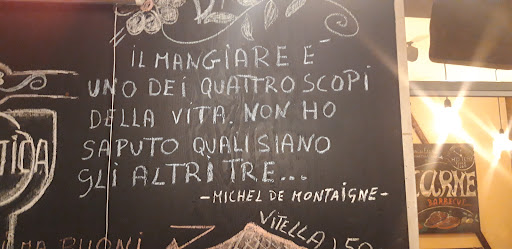 IL MANGIARE E'
UNO DEI QUATTRO SCOPI
DELLA VITA. NON HO
SAPUTO QUALI SIANO
GLI ALTRI TRE...
-MICHEL DE MONTAIGNE-
TICA
VITELLA 50
BUONI
CARNE
BARBECUE